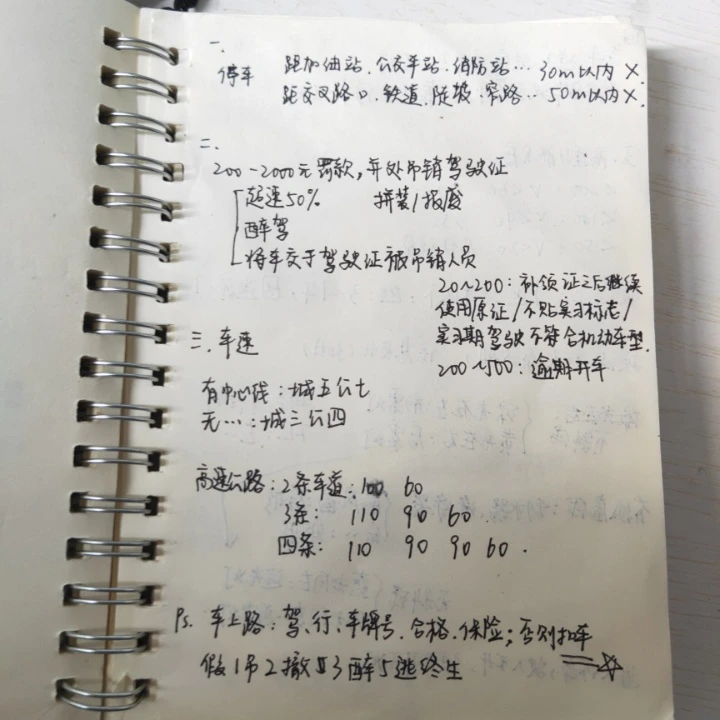 一.
停车 距加油站、公交车站、消防站… 30m以内 X
距交叉路口、铁道、陡坡、窄路… 50m以内 X.
二.
200-2000元罚款，并处吊销驾驶证
超速50% 拼装/报废
醉驾
将车交于驾驶证被吊销人员
20~200：补领证之后继续
使用原证/不贴实习标志/
实习期驾驶不符合机动车型.
200~500：逾期开车
三.车速
有中心线：城五公七
无…：城三公四
高速公路：2条车道：100 60
3条： 110 90 60.
四条： 110 90 90 60.
Ps. 车上路：驾、行、车牌号、合格、保险；否则扣车
假1吊2撤3醉5逃终生